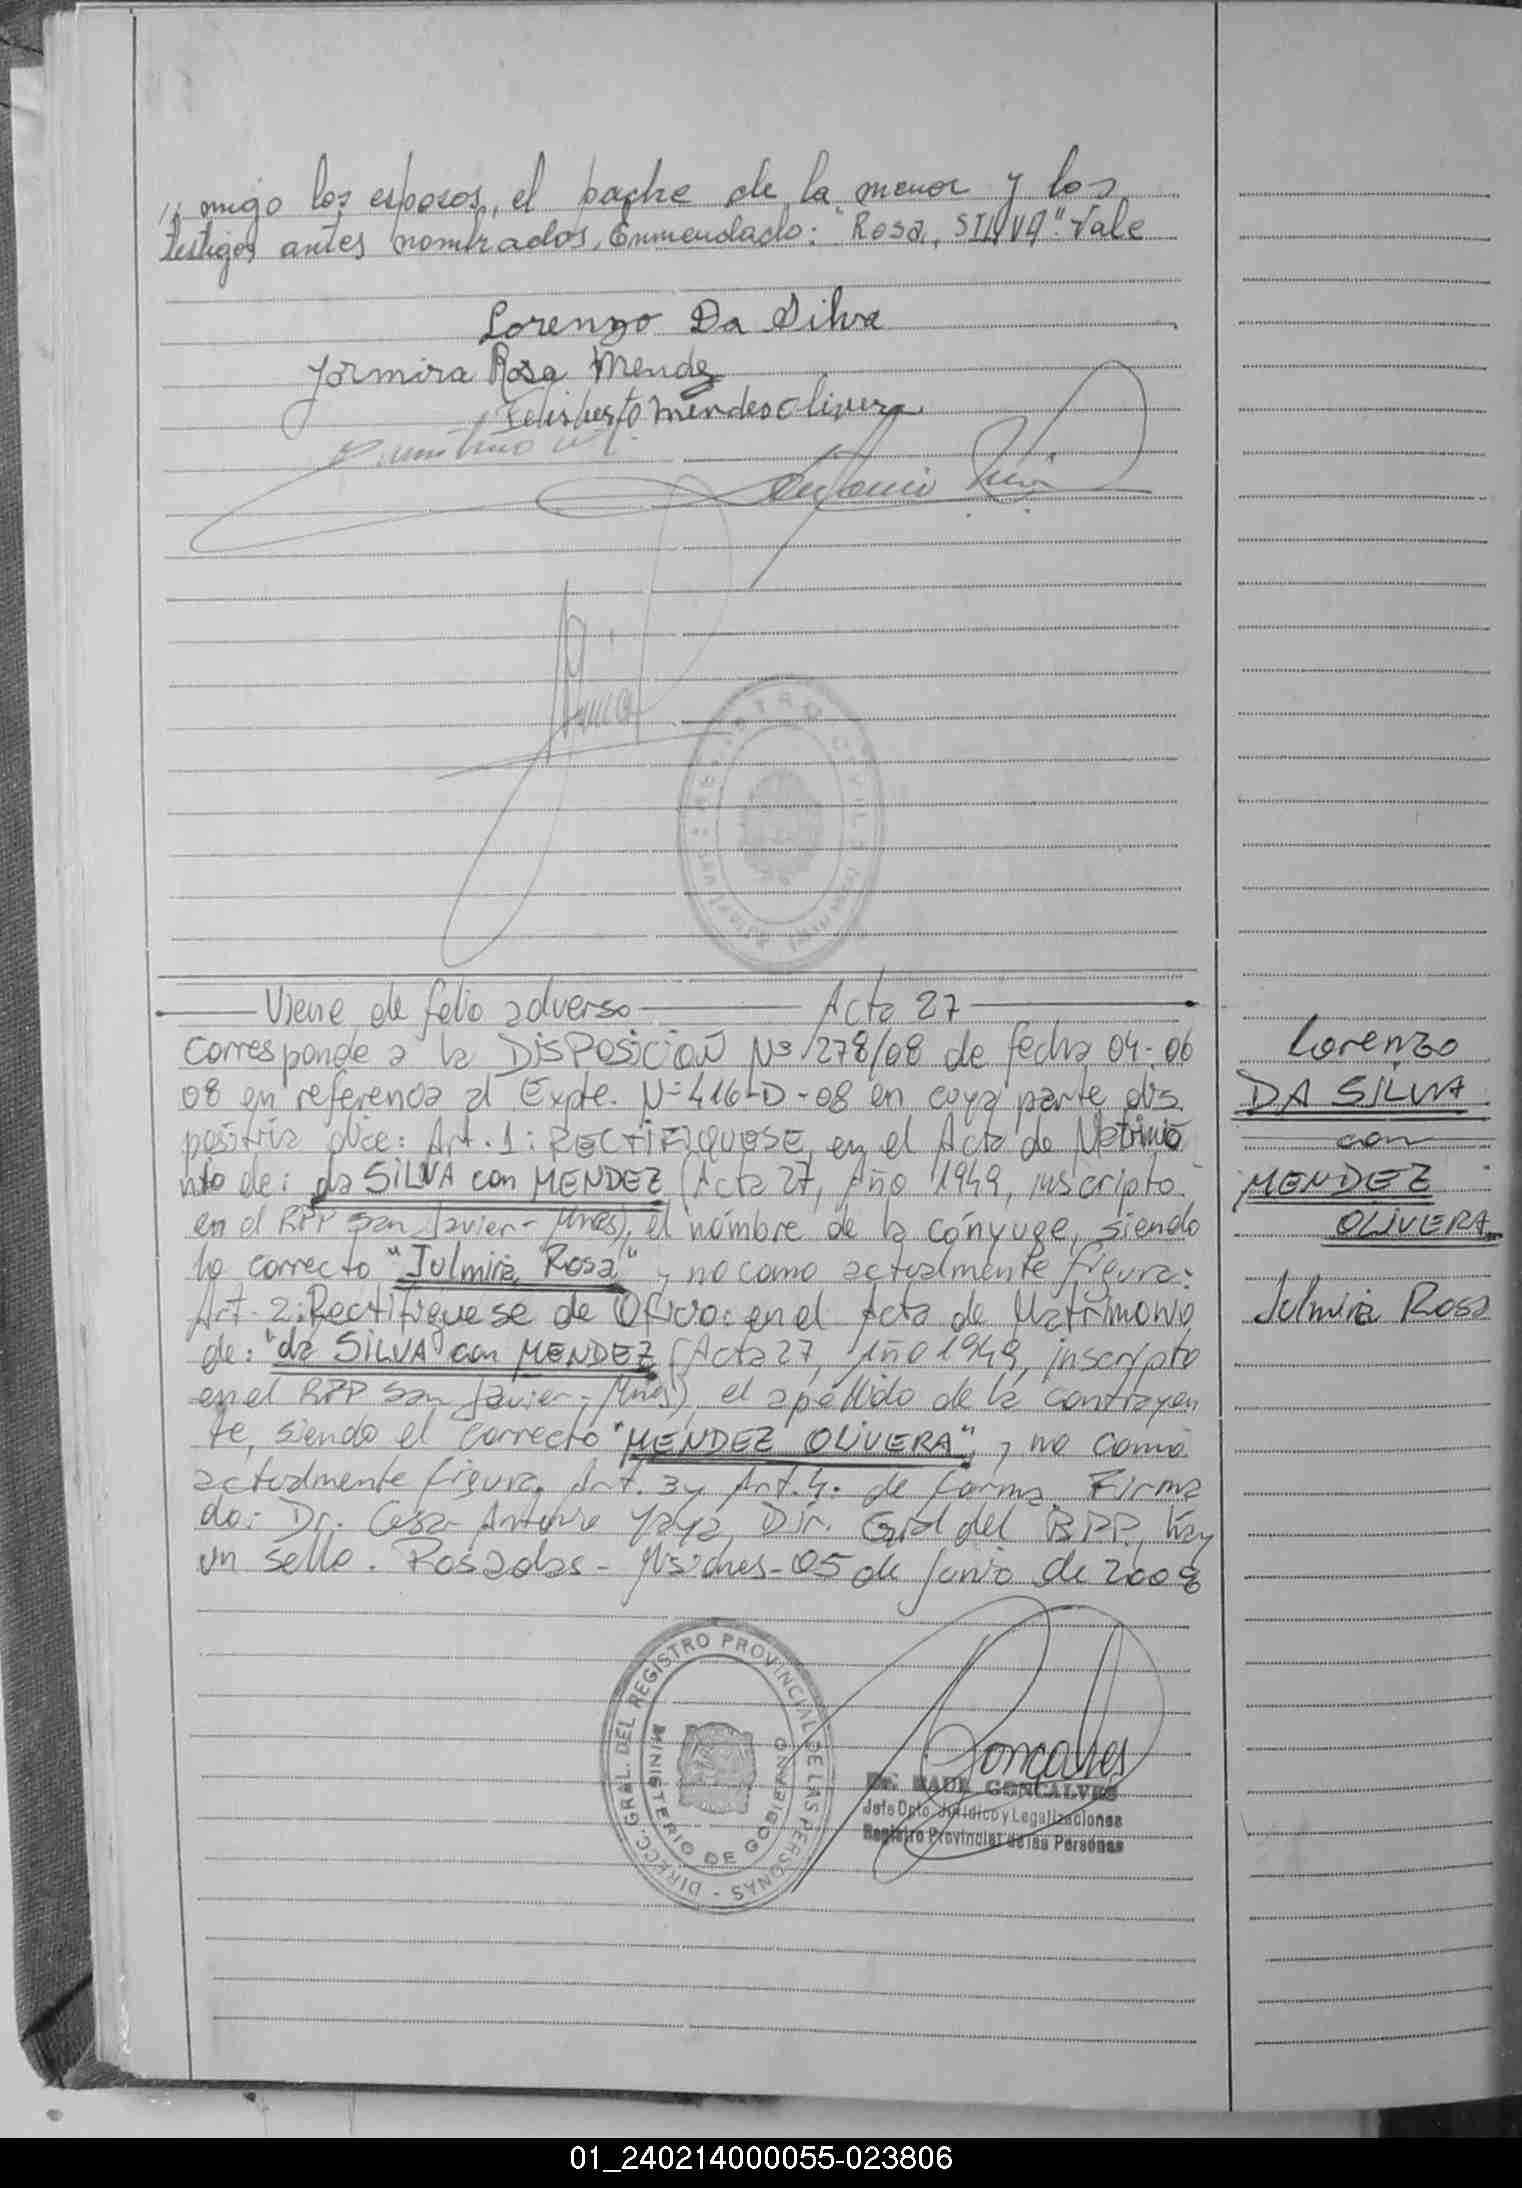 ,, migo los esposos, el padre de la menor y los
testigos antes nombrados. Enmendado: "Rosa, SILVA". Vale
Lorenzo Da Silva
Jormira Rosa Mendez
Felisberto Mendes Olivera
Antonio
REGISTRO CIVIL
Viene de folio adverso Acta 27
Corresponde a la DISPOSICIOÑ Nº 278/08 de fecha 04-06
08 en referencia al Expte. Nº 416-D-08 en cuya parte dis
positiva dice: Art. 1: RECTIFIQUESE, en el Acta de Matrimo
nio de: da SILVA con MENDEZ (Acta 27, Año 1949, inscripto
en el RPP San Javier - Mnes), el nombre de la cónyuge, siendo
lo correcto "Julmira Rosa" y no como actualmente figura.
Art. 2: Rectifiquese de Oficio: en el Acta de Matrimonio
de: "da SILVA con MENDEZ (Acta 27, Año 1949, inscripto
en el RPP San Javier - Mnes), el apellido de la contrayen
te, siendo el correcto "MENDEZ OLIVERA", y no como
actualmente figura. Art. 3 y Art. 4: de forma. Firma
do: Dr. Cesar Antonio Yaya, Dir. Gral del RPP, hay
un sello. Posadas - Misiones - 05 de Junio de 2008
Lorenzo
DA SILVA
con
MENDEZ
OLIVERA
Julmira Rosa
DIRECC. GRAL. DEL REGISTRO PROVINCIAL DE LAS PERSONAS -
MINISTERIO DE GOBIERNO
Goncalves
Dr. RAUL GONCALVES
Jefe Dpto. Jurídico y Legalizaciones
Registro Provincial de las Personas
01_240214000055-023806